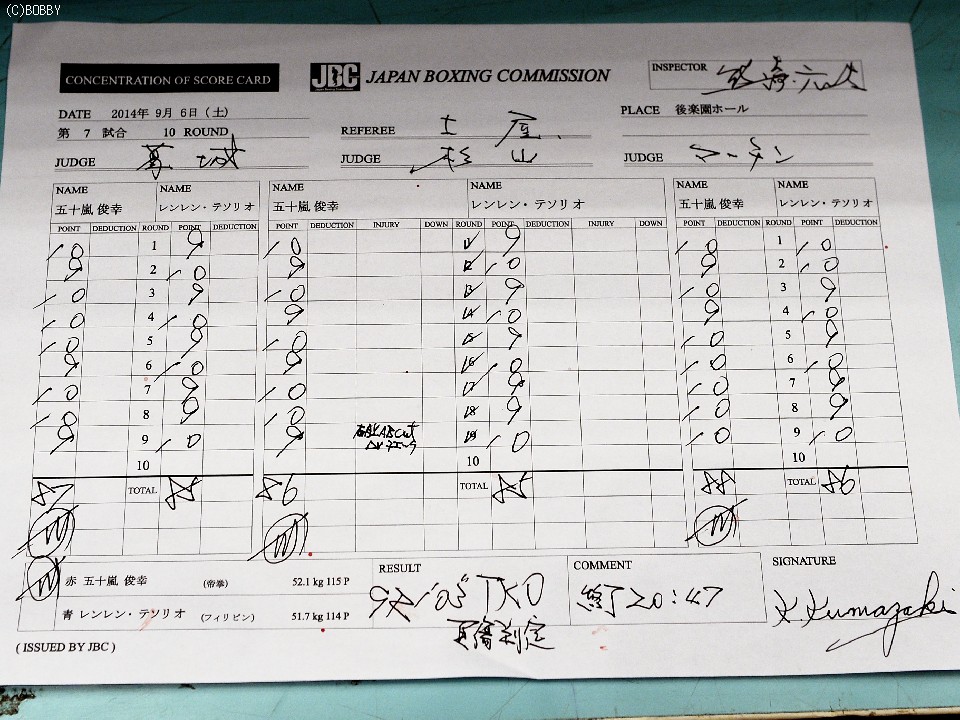 (C)BOBBY
CONCENTRATION OF SCORE CARD
JBC JAPAN BOXING COMMISSION
INSPECTOR
DATE 2014年 9月 6日 (土)
PLACE 後楽園ホール
第 7 試合 10 ROUND
REFEREE 土屋
JUDGE 葛城
JUDGE 杉山
JUDGE マーチン
NAME NAME NAME NAME NAME NAME
五十嵐 俊幸 レンレン・テソリオ 五十嵐 俊幸 レンレン・テソリオ 五十嵐 俊幸 レンレン・テソリオ
POINT DEDUCTION ROUND POINT DEDUCTION POINT DEDUCTION INJURY DOWN ROUND POINT DEDUCTION INJURY DOWN POINT DEDUCTION ROUND POINT DEDUCTION
10 1 9 10 1 9 10 1 10
9 2 10 9 2 10 9 2 10
10 3 9 10 3 9 10 3 9
10 4 10 9 4 10 9 4 10
10 5 9 10 5 9 10 5 9
9 6 10 9 6 10 10 6 10
10 7 9 10 7 9 10 7 9
10 8 9 10 8 9 10 8 9
9 9 10 9 9 10 10 9 10
10 10 10
87 TOTAL 85 86 TOTAL 85 88 TOTAL 86
赤 五十嵐 俊幸 (帝拳) 52.1 kg 115 P
青 レンレン・テソリオ (フィリピン) 51.7 kg 114 P
RESULT
9R 1'03" TKO
COMMENT
終了 20:47
SIGNATURE
K. Kumazaki
( ISSUED BY JBC )